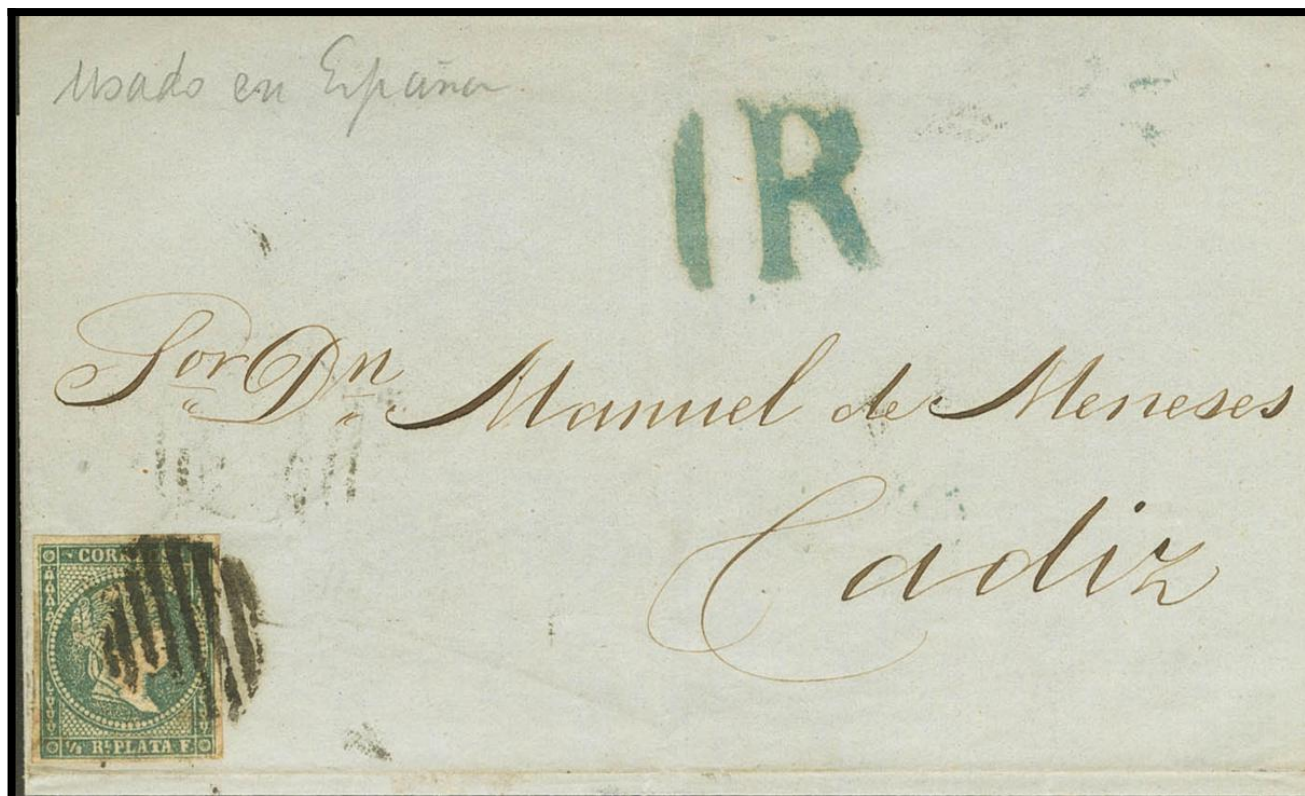 Usado en España
1R
Sor Dn Manuel de Meneses
Cadiz
R.L PLATA F.